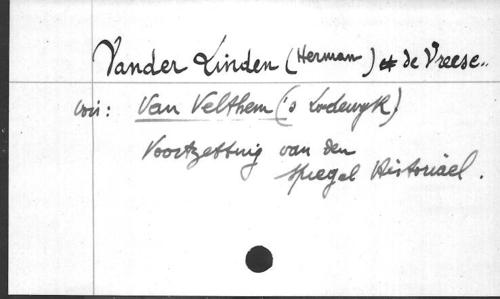 Vander Linden (Herman) & de Vreese..
voir: Van Velthem ('s Lodewyk)
Voortzetting van den
Spiegel Historiael.